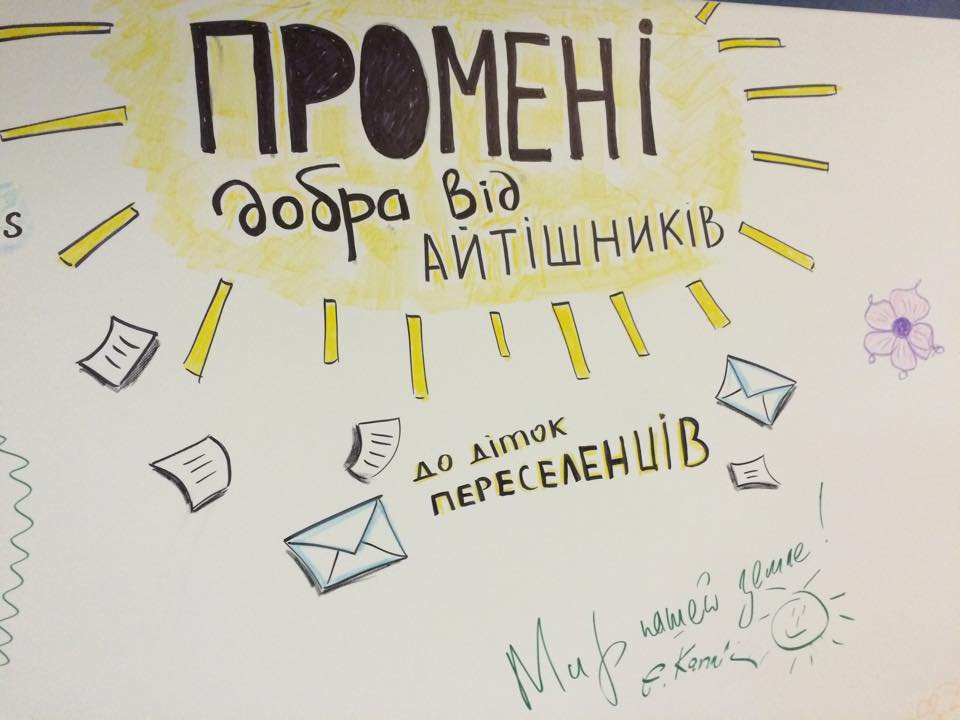 ПРОМЕНІ
добра від
АЙТІШНИКІВ
s
до діток
ПЕРЕСЕЛЕНЦІВ
Мир нашей земле!